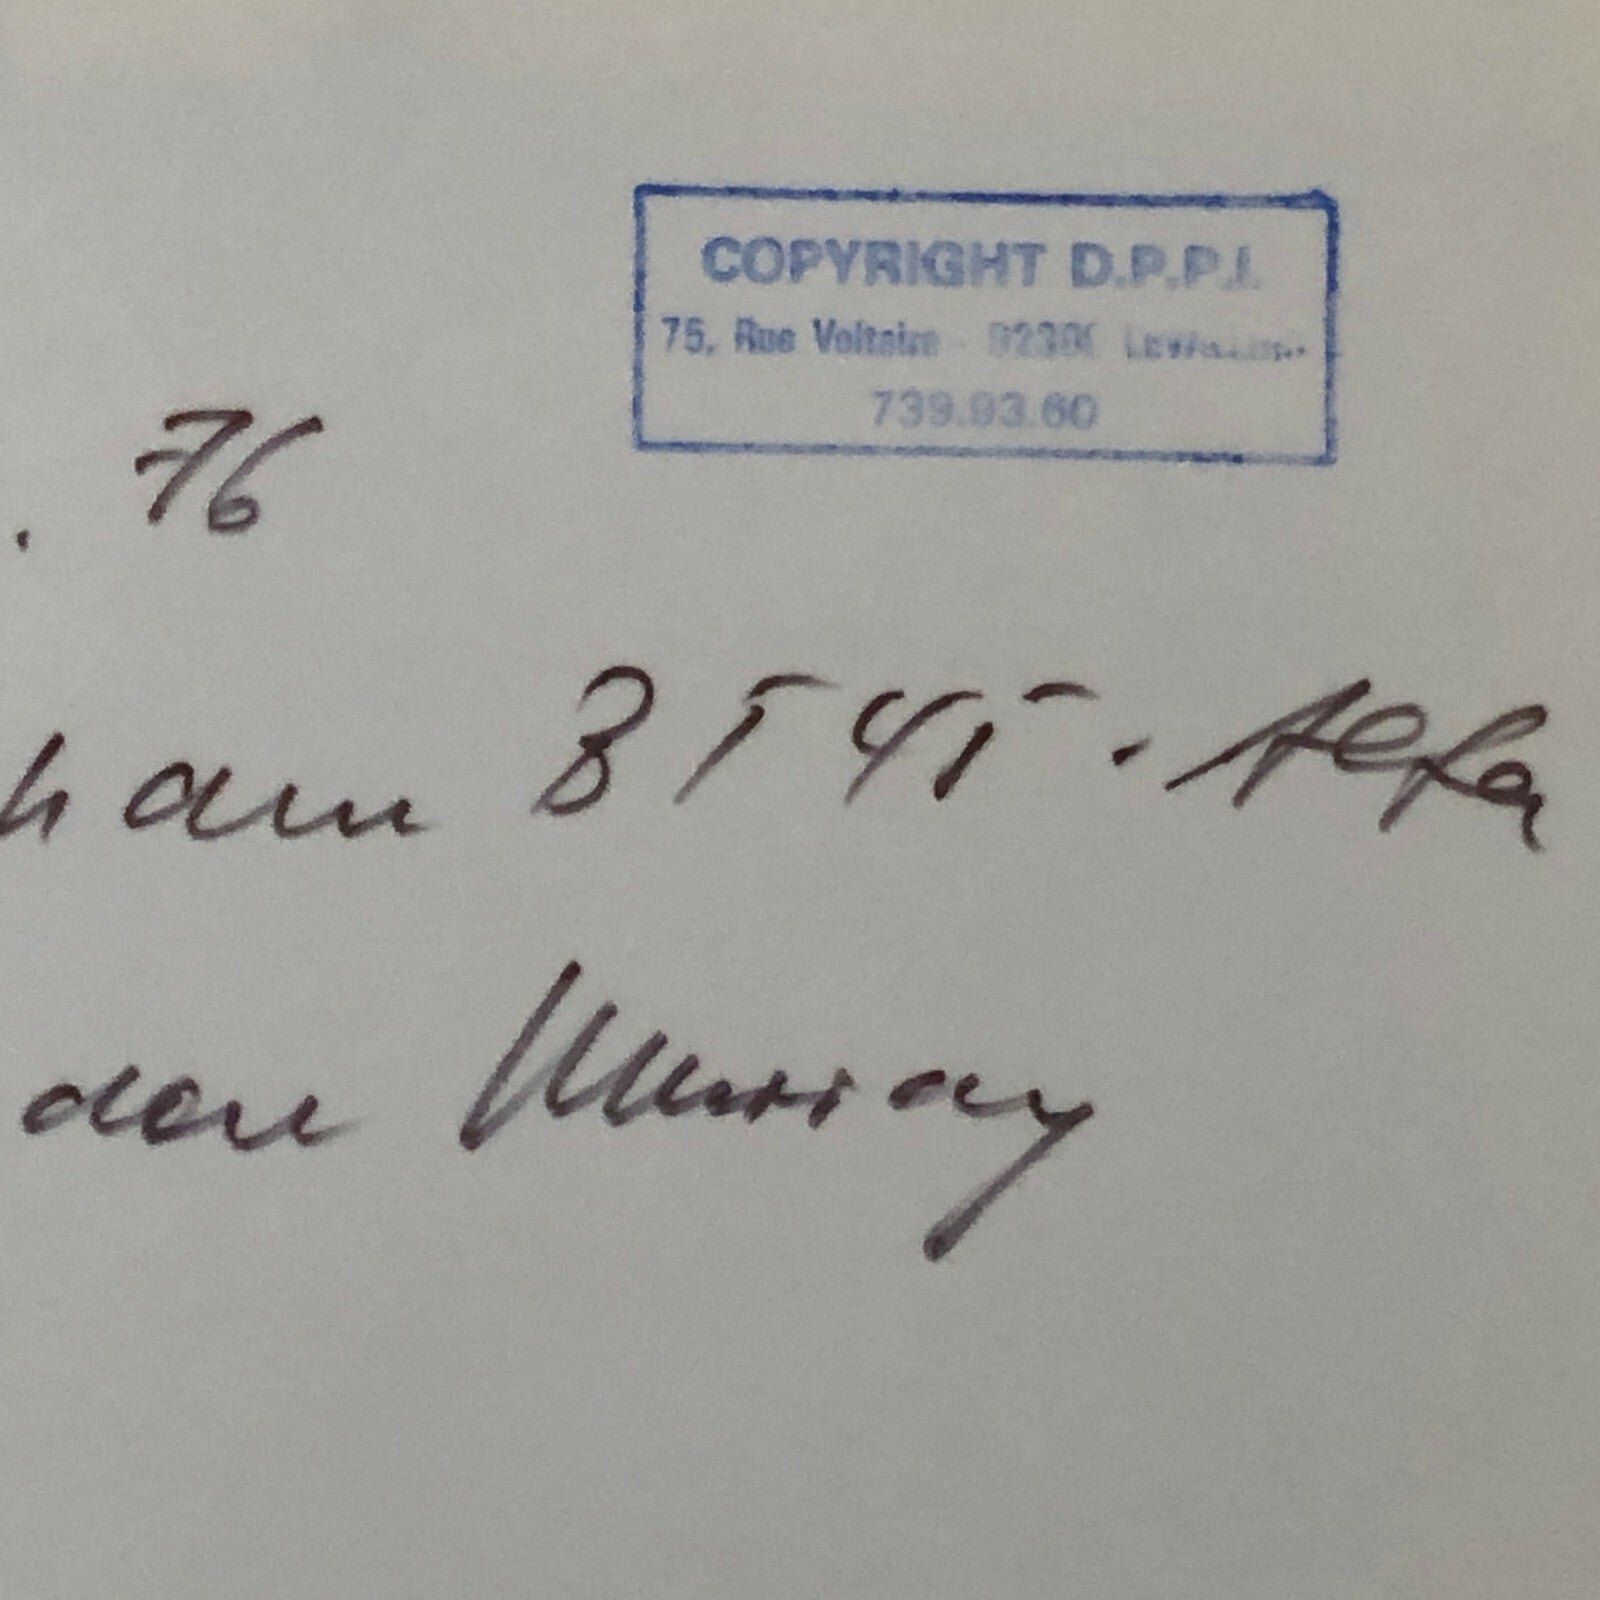 COPYRIGHT D.P.P.I.
75, Rue Voltaire 92300
739.93.60
. 76
ham BT45 - Alfa
den Murray